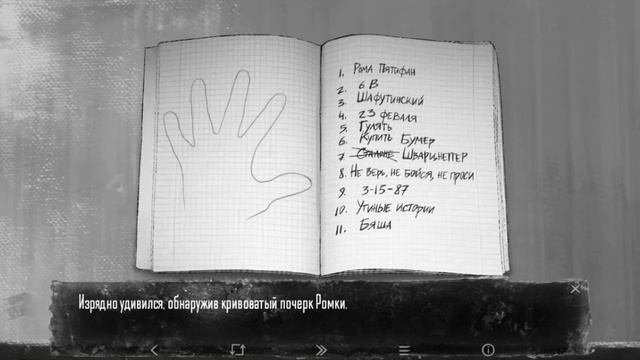 1. Рома Пятифан
2. 6 В
3. Шафутинский
4. 23 февраля
5. Гулять
6. Купить Бумер
7 Сталоне Шварцнеггер
8. Не верь, не бойся, не проси
9. 3-15-87
10. Утиные истории
11. Бяша
Изрядно удивился, обнаружив кривоватый почерк Ромки.